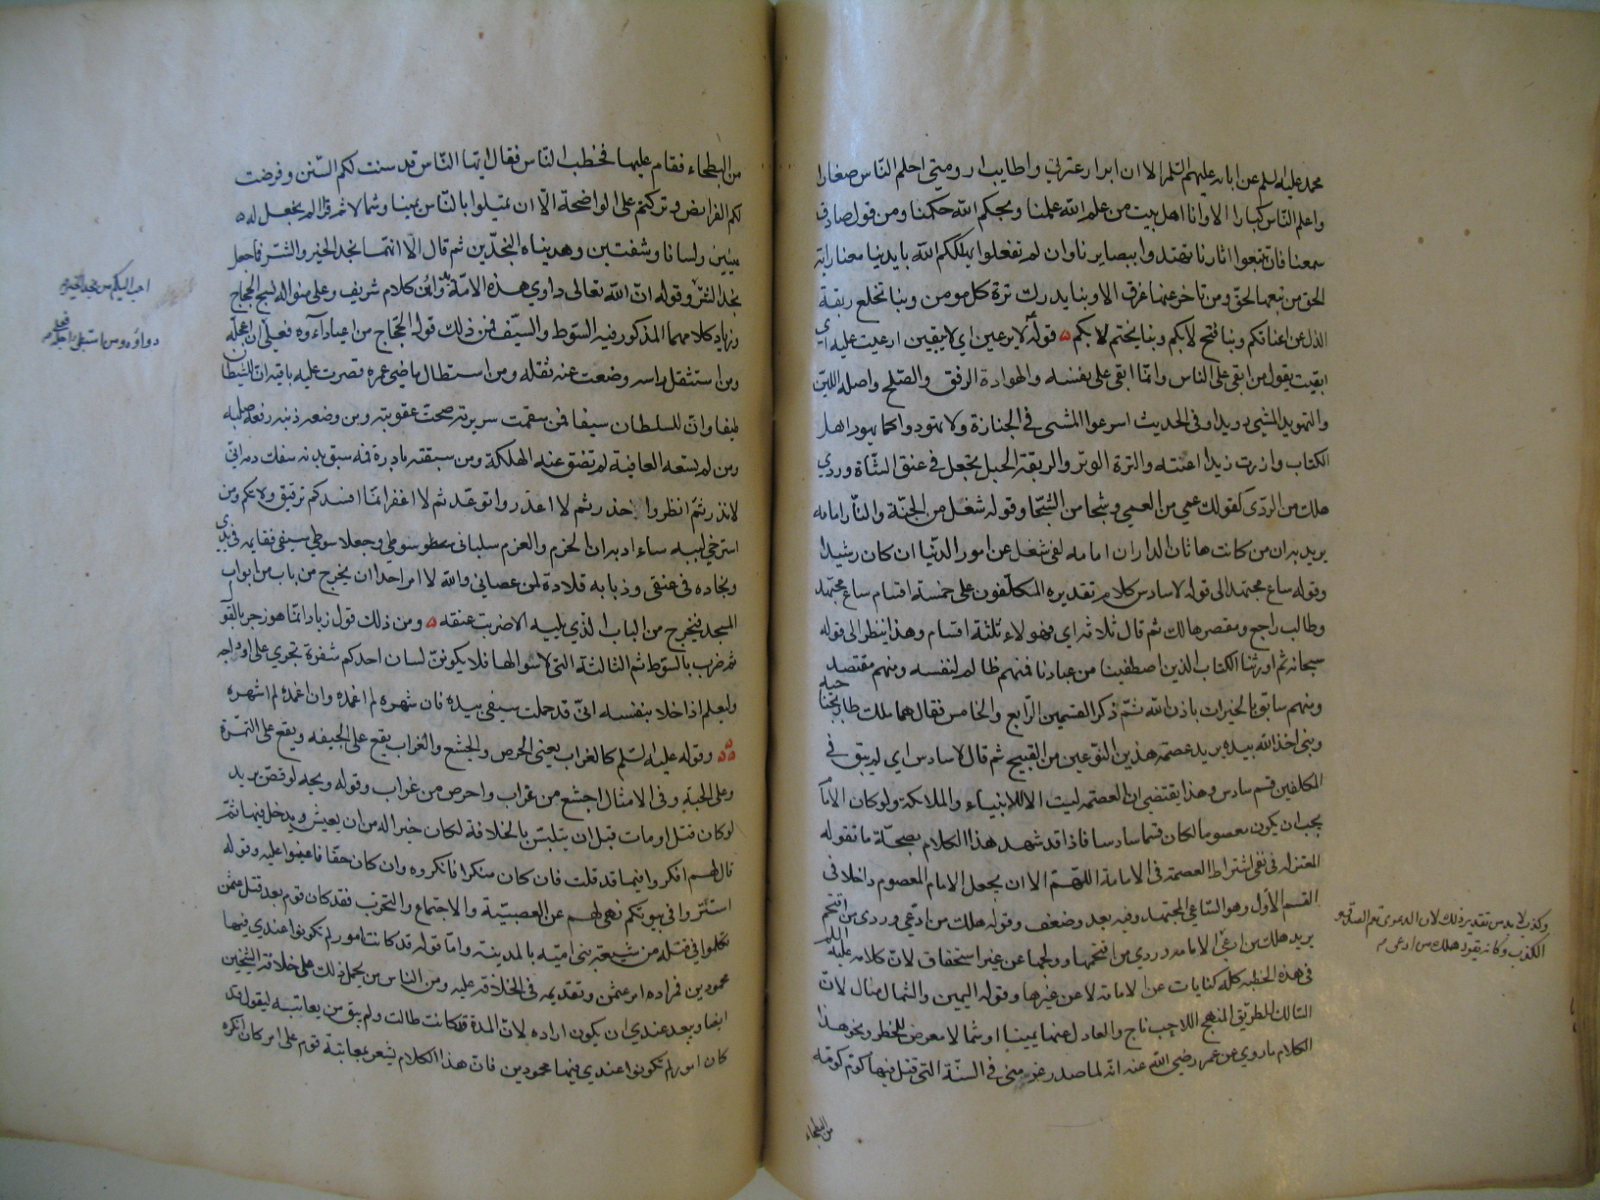 محمد عليه السلم عن ابائه عليهم السلم الا ان ابرار عترتي واطايب ارومتي احلم الناس صغارا
واعلم الناس كبارا الا وانا اهل بيت من علم الله علمنا وبحكم الله حكمنا ومن قول صادق
سمعنا فان تتبعوا اثارنا تهتدوا ببصايرنا وان لم تفعلوا يهلككم الله بايدينا معنا راية
الحق من تبعها لحق ومن تاخر عنها غرق الا وبنا يدرك ترة كل مومن وبنا تخلع ربقة
الذل عن اعناقكم وبنا فتح لا بكم وبنا يختم لا بكم ٥ قوله لا يرعين اي لا يبقين ارعيت عليه اي
ابقيت يقول من ابقى على الناس وانما ابقى على نفسه والهوادة الرفق والصلح واصله اللين
والتهويد المشي رويدا وفي الحديث اسرعوا المشي في الجنازة ولا تهودوا كما يهود اهل
الكتاب وازرت زيدا اعنته والترة الوتر والربقة الحبل يجعل في عنق الشاة وردي
هلك من الردى كقولك عمي من العمى وشجا من الشجا وقوله شغل من الجنة والنار امامه
يريد به ان من كانت هاتان الداران امامه لفي شغل عن امور الدنيا ان كان رشيدا
وقوله ساع مجتهد الى قوله لا سادس كلام تقديره المكلفون على خمسة اقسام ساع مجتهد
وطالب راجع ومقصر هالك ثم قال ثلاثة اي فهولاء ثلثة اقسام وهذا ينظر الى قوله
سبحانه ثم اورثنا الكتاب الذين اصطفينا من عبادنا فمنهم ظالم لنفسه ومنهم مقتصد
ومنهم سابق بالخيرات باذن الله ثم ذكر القسمين الرابع والخامس فقال هما ملك طار بجناحيه
ونبي اخذ الله بيده يريد عصمة هذين النوعين من القبيح ثم قال لا سادس اي لم يبق في
المكلفين قسم سادس وهذا يقتضي ان العصمة ليست الا للانبياء والملائكة ولو كان الامام
يجب ان يكون معصوما لكان قسما سادسا فاذا قد شهد هذا الكلام بصحة ما تقوله
المعتزلة في نفي اشتراط العصمة في الامامة اللهم الا ان يجعل الامام المعصوم داخلا في
القسم الاول وهو الساعي المجتهد وفيه بعد وضعف وقوله هلك من ادعى وردي من اقتحم
يريد هلك من ادعى الامامة وردي من اقتحمها وولجها عن غير استحقاق لان كلامه عليه السلم
في هذه الخطبة كله كنايات عن الامامة لا عن غيرها وقوله اليمين والشمال مثال لان
السالك الطريق المنهج اللاحب ناج والعادل عنها يمينا او شمالا معرض للخطر ونحو هذا
الكلام ما روي عن عمر رضي الله عنه انه لما صدر عن منى في السنة التي قتل فيها كوم كومة
من البطحاء
وكذب لا بد من تقدير ذلك لان الدعوى تعم الصادق و
الكذب وكانه يقول هلك من ادعى
من البطحاء فقام عليها فخطب الناس فقال ايها الناس قد سنت لكم السنن وفرضت
لكم الفرايض وتركتم على الواضحة الا ان تميلوا بالناس يمينا وشمالا ثم قرا الم يجعل له ٥
عينين ولسانا وشفتين وهديناه النجدين ثم قال الا انهما نجد الخير والشر فما جعل
نجد الشر وقوله ان الله تعالى داوى هذه الامة بدوائين كلام شريف وعلى منواله نسج الحجاج
وزياد كلامهما المذكور فيه السوط والسيف فمن ذلك قول الحجاج من اعياه داءوه فعلي ان اعجله
ومن استثقل راسه وضعت عنه ثقله ومن استطال ماضي عمره قصرت عليه باقيه ان للشيطان
طيفا وان للسلطان سيفا فمن سقمت سريرته صحت عقوبته ومن وضعه ذنبه رفعه صلبه
ومن لم يسعه العافية لم تضق عنه الهلكة ومن سبقته بادرة فمه سبق بدنه سفك دمه اني
لانذر ثم انظر واحذر ثم لا اعذر واتوعد ثم لا اغفر انما افسدكم ترقيق ولاتكم ومن
استرخى لببه ساء ادبه ان الحزم والعزم سلباني سوطي وجعلا سوطي سيفي فقايمه في يدي
ونجاده في عنقي وذبابه قلادة لمن عصاني والله لا امر احدا ان يخرج من باب من ابواب
المسجد فيخرج من الباب الذي يليه الا ضربت عنقه ٥ ومن ذلك قول زياد انما هو زجر بالقول
ثم ضرب بالسوط ثم الثالثة التي لا سوا لها فلا يكونن لسان احدكم شفرة تجري على اوداجه
وليعلم اذا خلا بنفسه اني قد حملت سيفي بيده فان شهره لم اغمده وان اغمده لم اشهره
٥٥٥ وقوله عليه السلم كالغراب يعني الحرص والجشع والغراب يقع على الجيفة ويقع على التمرة
وعلى الحبة وفي الامثال اجشع من غراب واحرص من غراب وقوله ويحه لو قص يريد
لو كان قتل او مات قبل ان يتلبس بالخلافة لكان خيرا له من ان يعيش ويدخل فيها ثم
قال لهم افكروا فيما قد قلت فان كان منكرا فانكروه وان كان حقا فاعينوا عليه وقوله
استتروا في بيوتكم نهي لهم عن العصبية والاجتماع والتحزب فقد كان قوم بعد قتل عثمن
تكلموا في قتله من شيعة بني امية بالمدينة واما قوله قد كانت امور لم تكونوا عندي فيها
محمودين فمراده امر عثمن وتقديمه في الخلافة عليه ومن الناس من يحمل ذلك على خلافة الشيخين
ايضا ويبعد عندي ان يكون اراده لان المدة قد كانت طالت ولم يبق من يعاتبه ليقول قد
كان امور لم تكونوا عندي فيها محمودين فان هذا الكلام يشعر بمعاتبة قوم على امر كان انكره